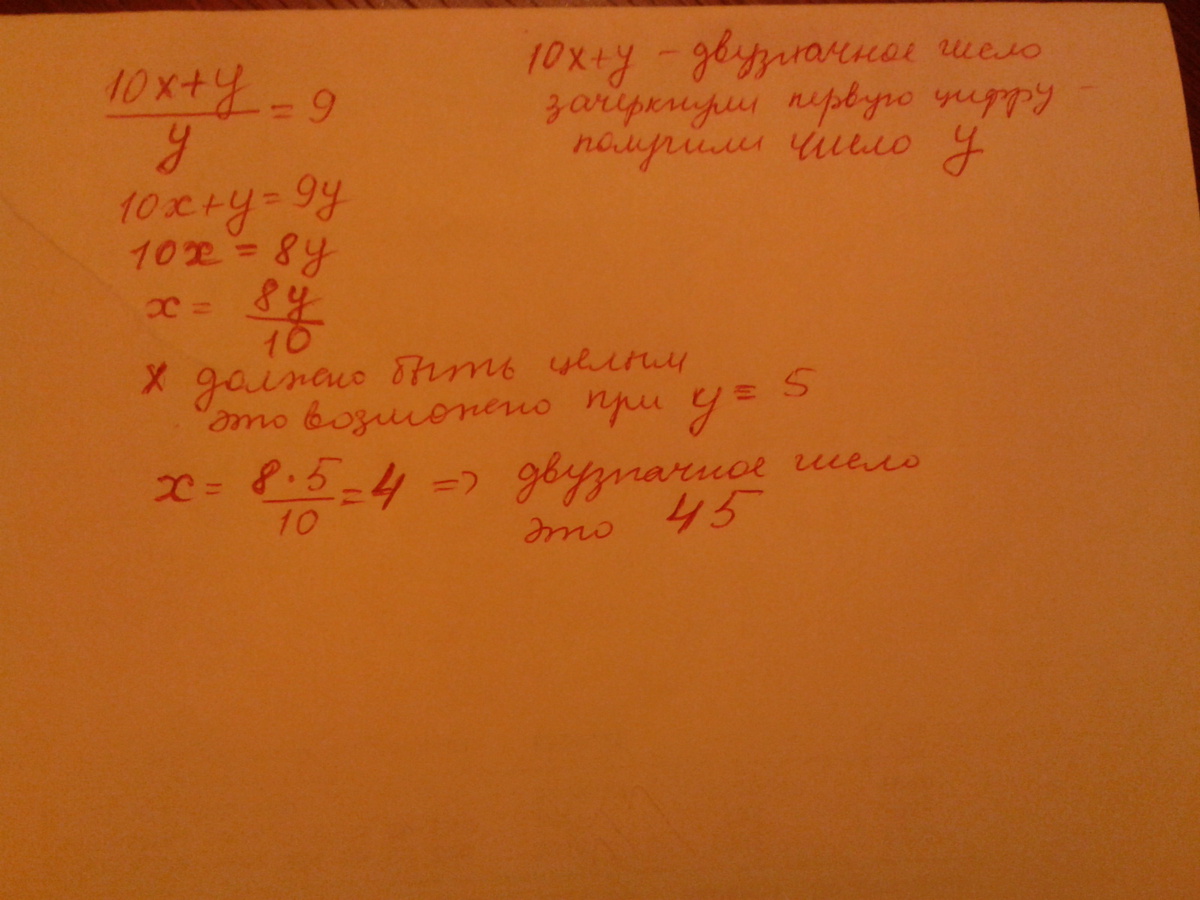 10x+y / y = 9
10x+y – двузначное число
зачеркнули первую цифру –
получили число y
10x+y = 9y
10x = 8y
x = 8y / 10
x должно быть целым
это возможно при y = 5
x = 8·5 / 10 = 4 => двузначное число
это 45